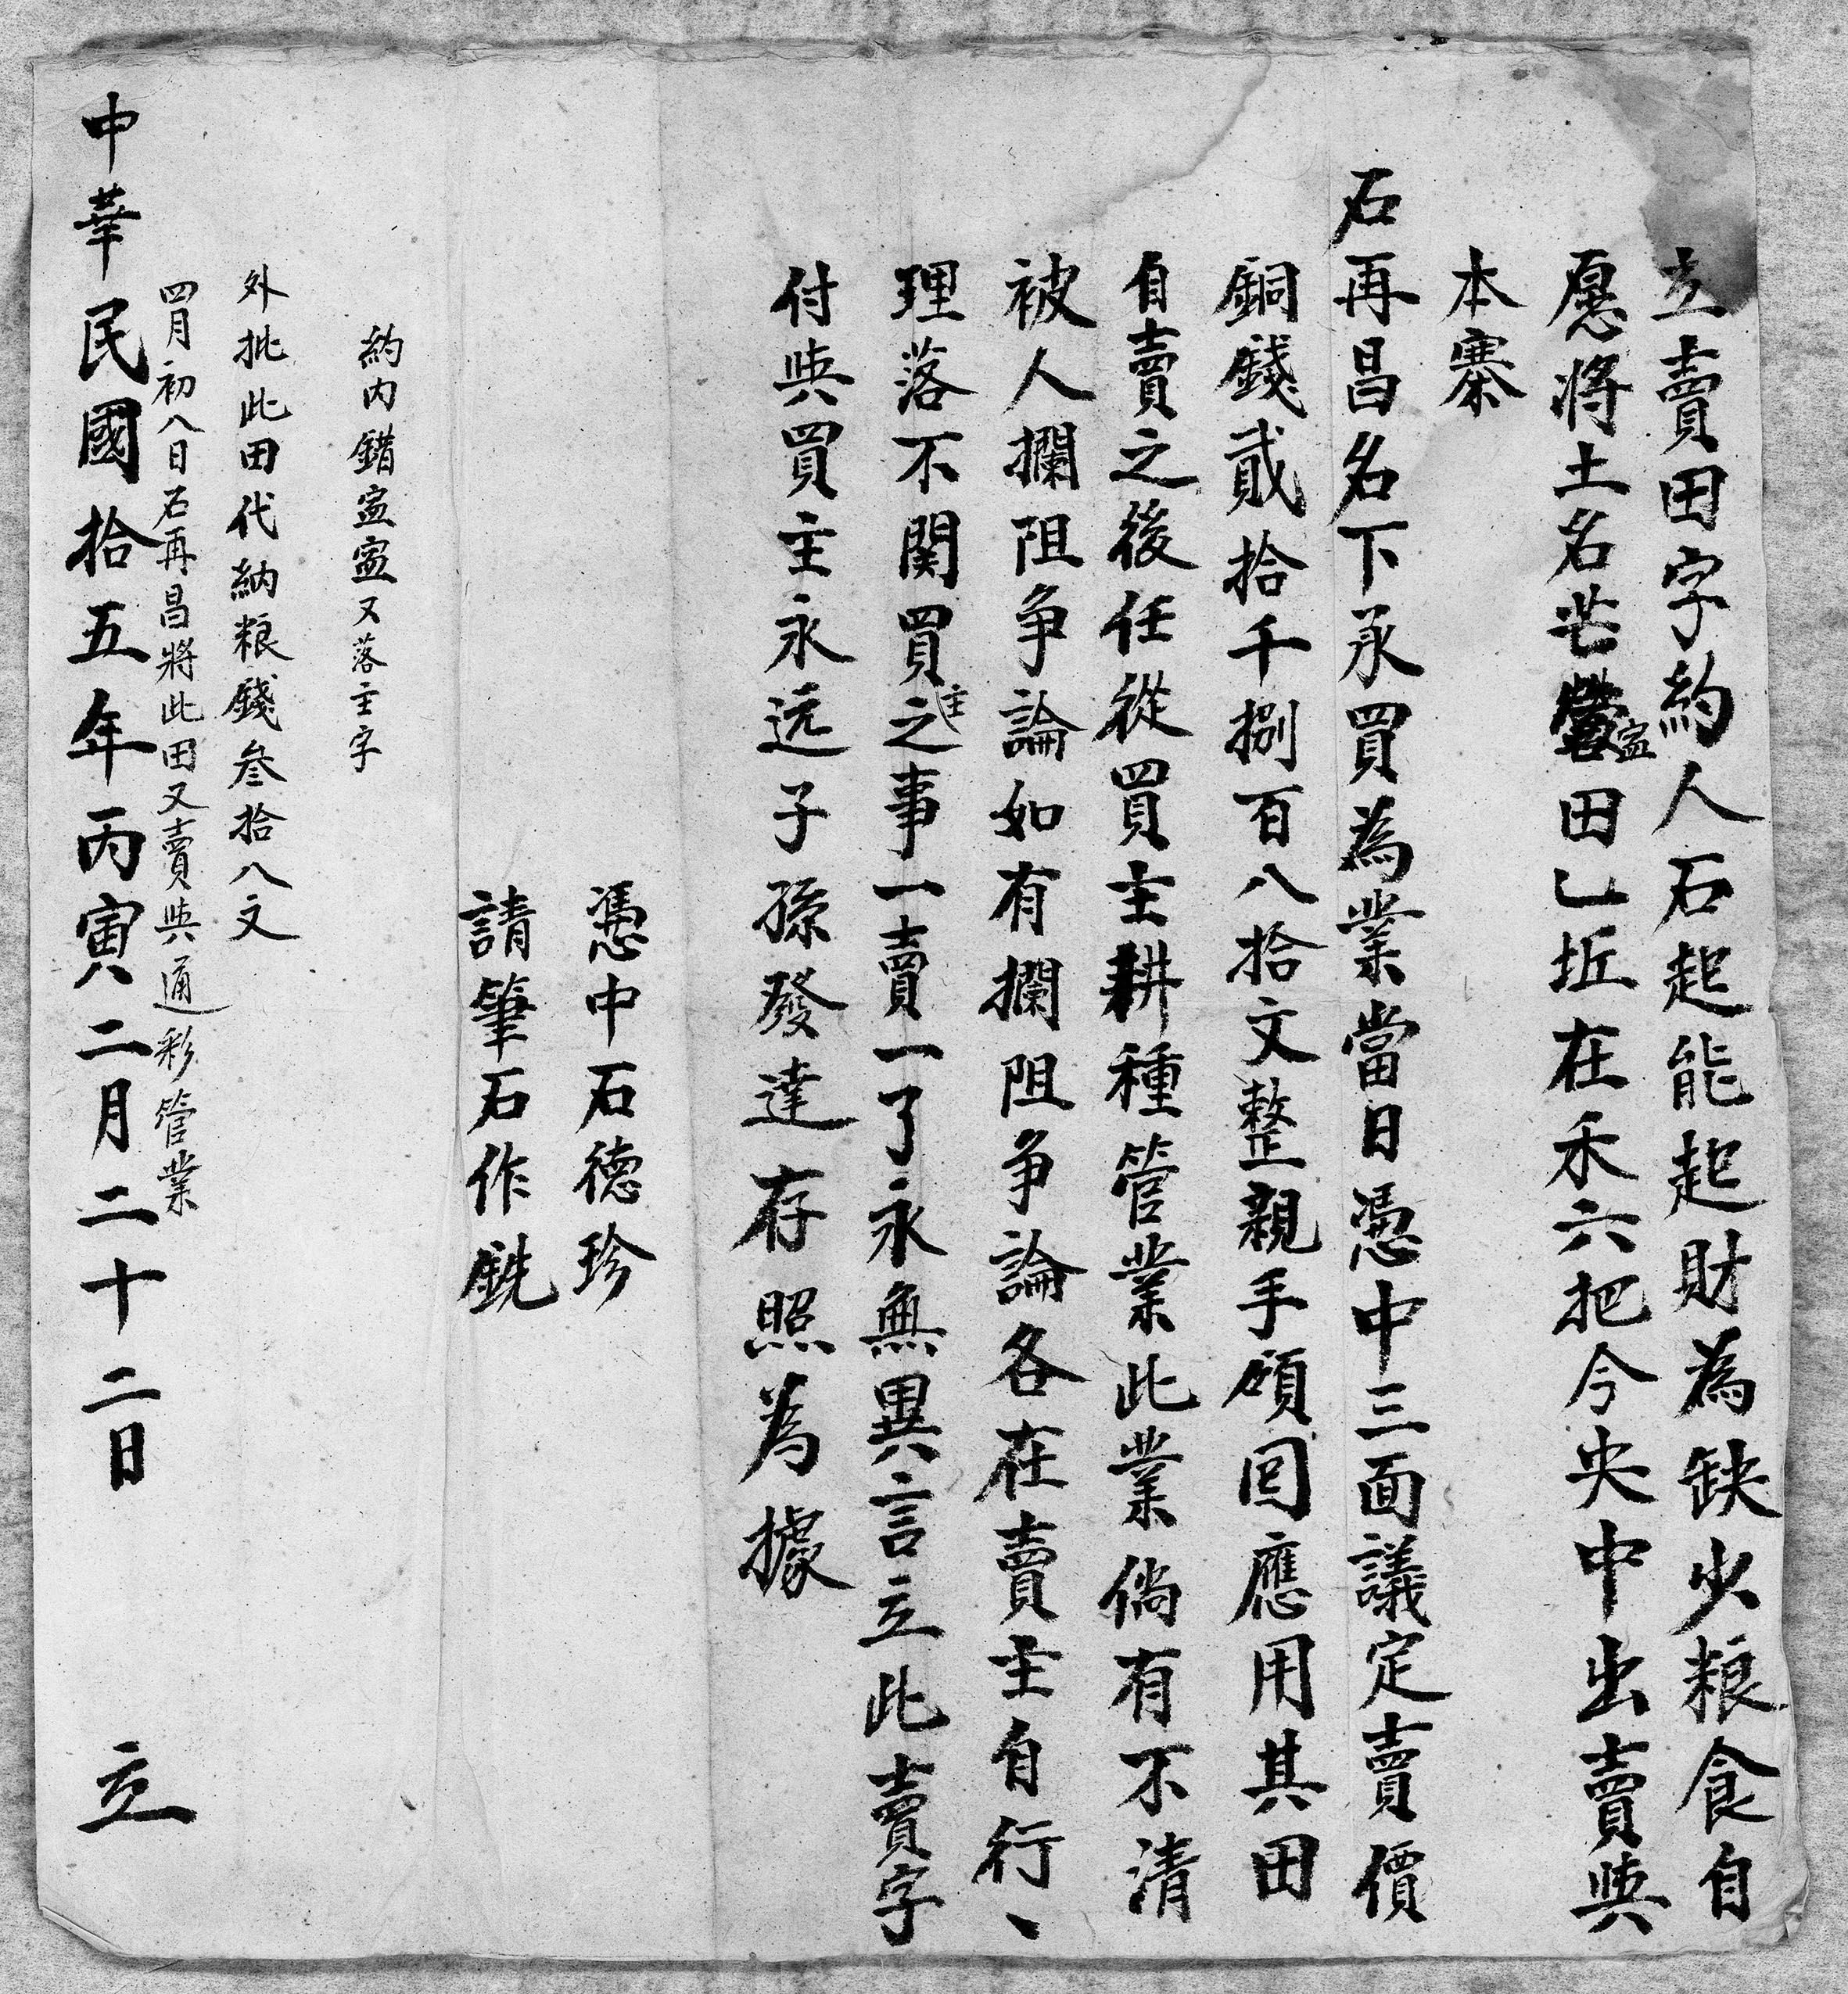 立賣田字約人石起能起財為缺少粮食自
愿將土名芒寍田乚坵在禾六把今央中出賣與
本寨
石再昌名下承買為業當日憑中三面議定賣價
銅錢貳拾千捌百八拾文整親手領回應用其田
自賣之後任從買主耕種管業此業倘有不清
被人攔阻争論如有攔阻争論各在賣主自行、
理落不関買主之事一賣一了永無異言立此賣字
付與買主永远子孫發達存照為據
憑中石德珍
請筆石作銑
約内錯寍寍又落主字
外批此田代納粮錢叁拾八文
四月初八日石再昌將此田又賣與通彩管業
中華民國拾五年丙寅二月二十二日 立